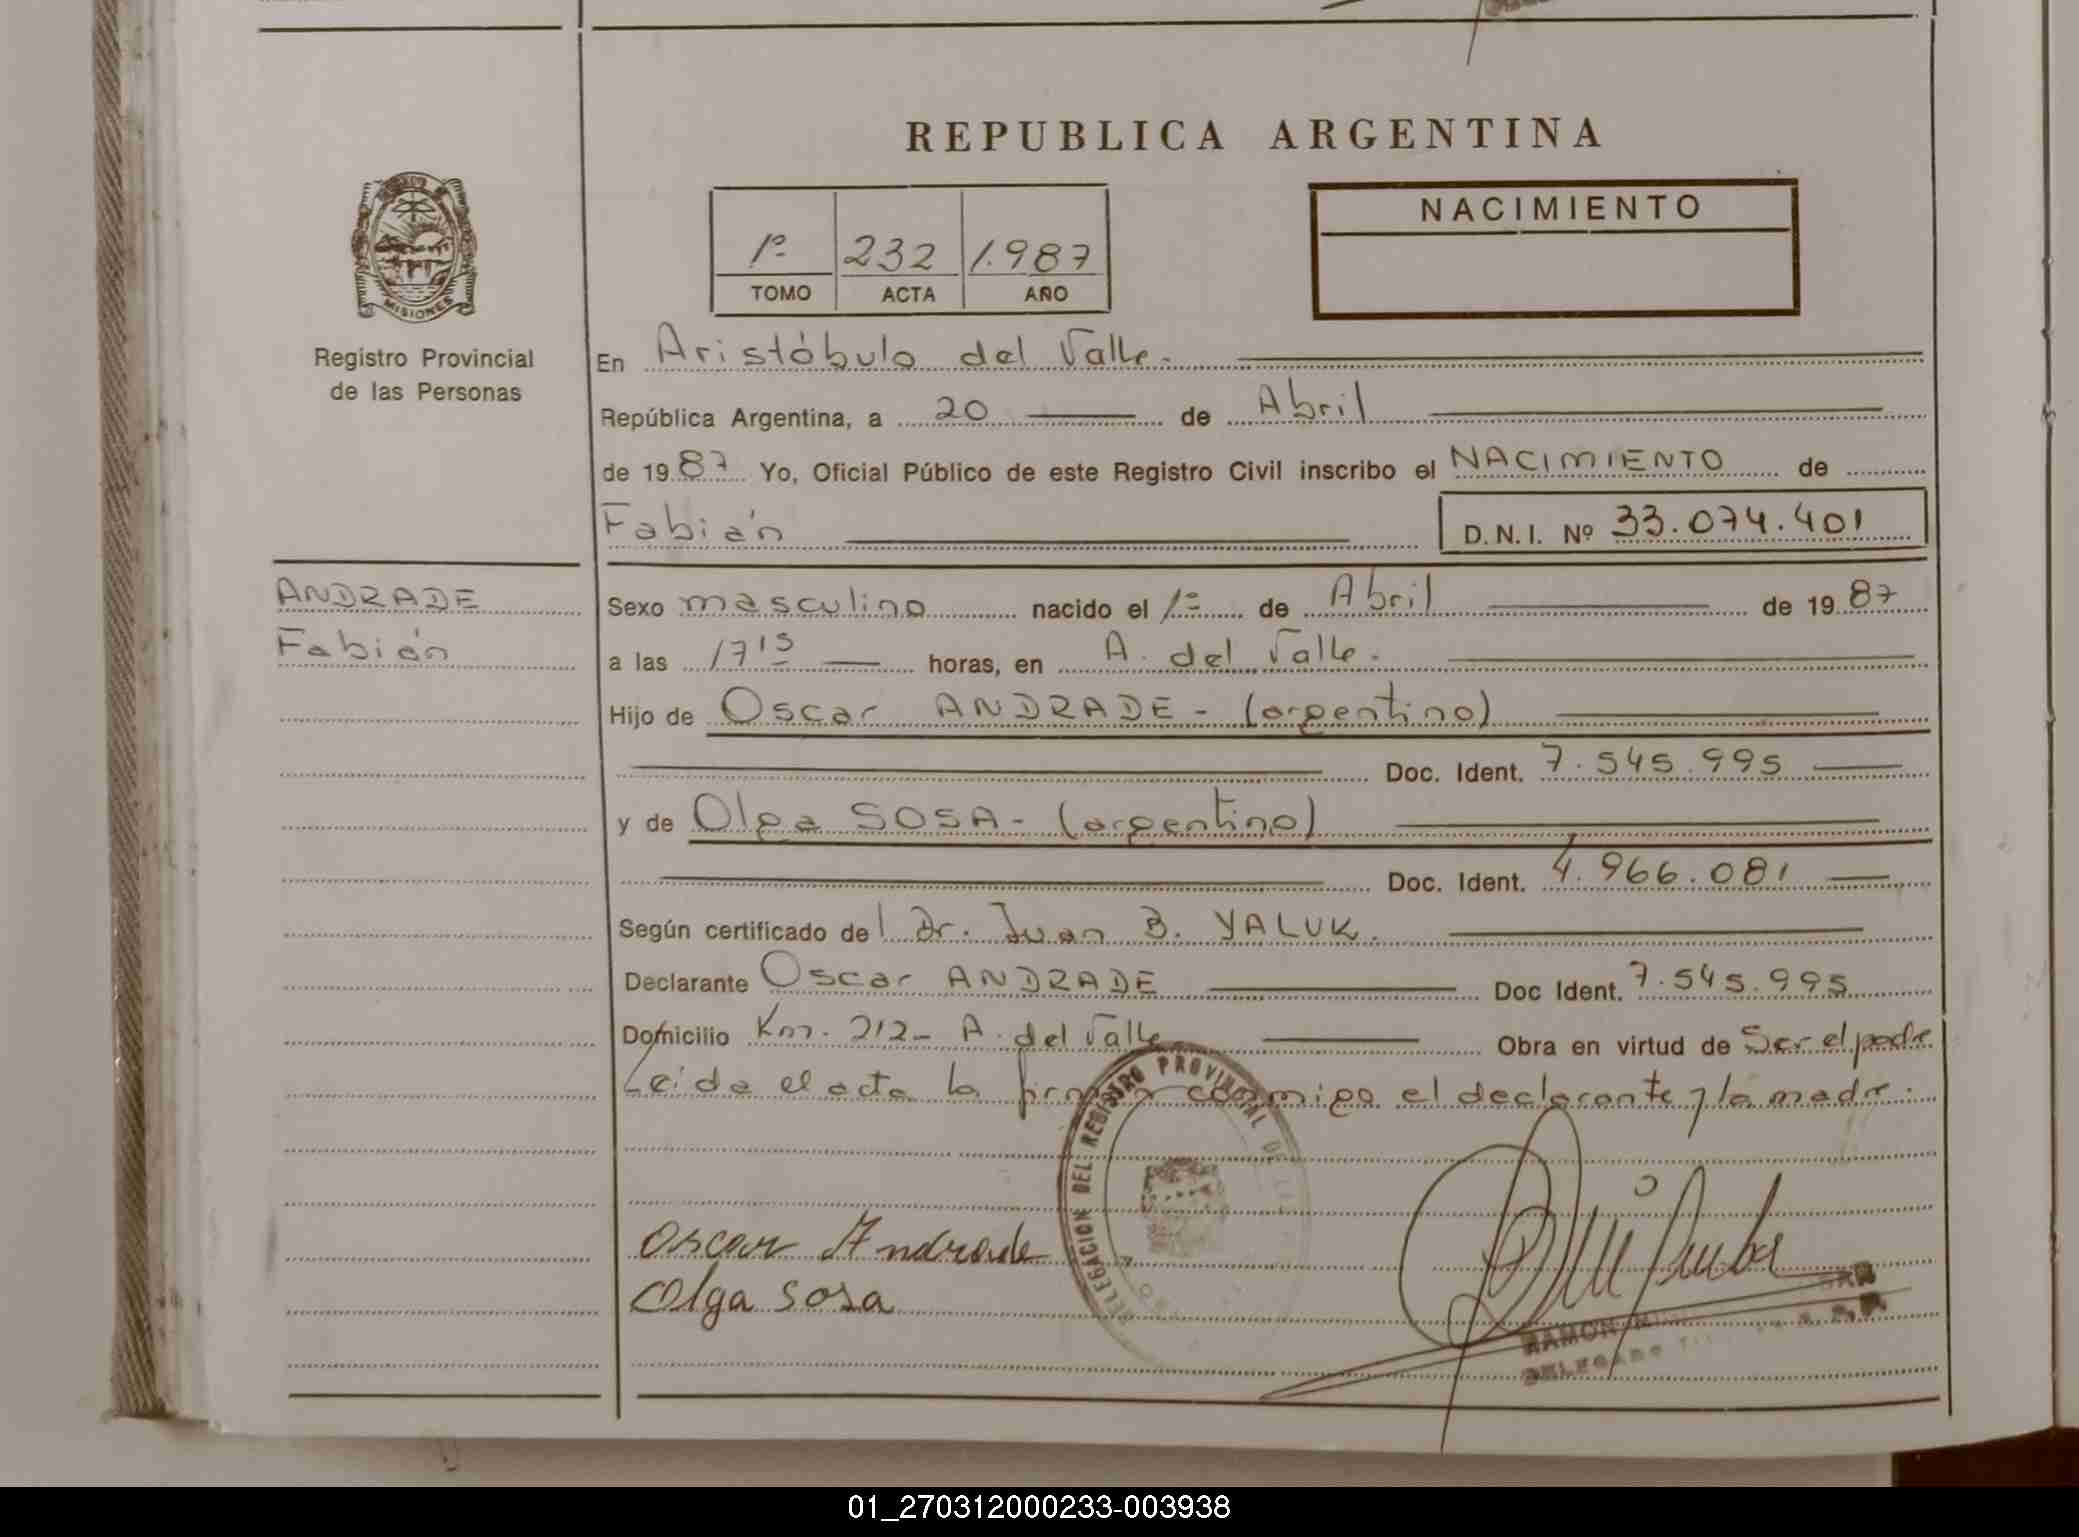 REPUBLICA ARGENTINA
NACIMIENTO
1º 232 1.987
TOMO ACTA AÑO
MISIONES
Registro Provincial
de las Personas
En Aristóbulo del Valle.
República Argentina, a 20 de Abril
de 1987 Yo, Oficial Público de este Registro Civil inscribo el NACIMIENTO de
Fabián
D.N.I. Nº 33.074.401
ANDRADE
Fabián
Sexo masculino nacido el 1º de Abril de 1987
a las 17 15 horas, en A. del Valle.
Hijo de Oscar ANDRADE - (argentino)
Doc. Ident. 7.545.995
y de Olga SOSA - (argentino)
Doc. Ident. 4.966.081
Según certificado del Dr. Juan B. YALUK.
Declarante Oscar ANDRADE Doc Ident. 7.545.995
Domicilio Km. 212 - A. del Valle Obra en virtud de Ser el padre
Leida el acta la firman conmigo el declarante y la madre.
DELEGACION DEL REGISTRO PROVINCIAL DE
Oscar Andrade
Olga Sosa
RAMON
DELEGADO
01_270312000233-003938